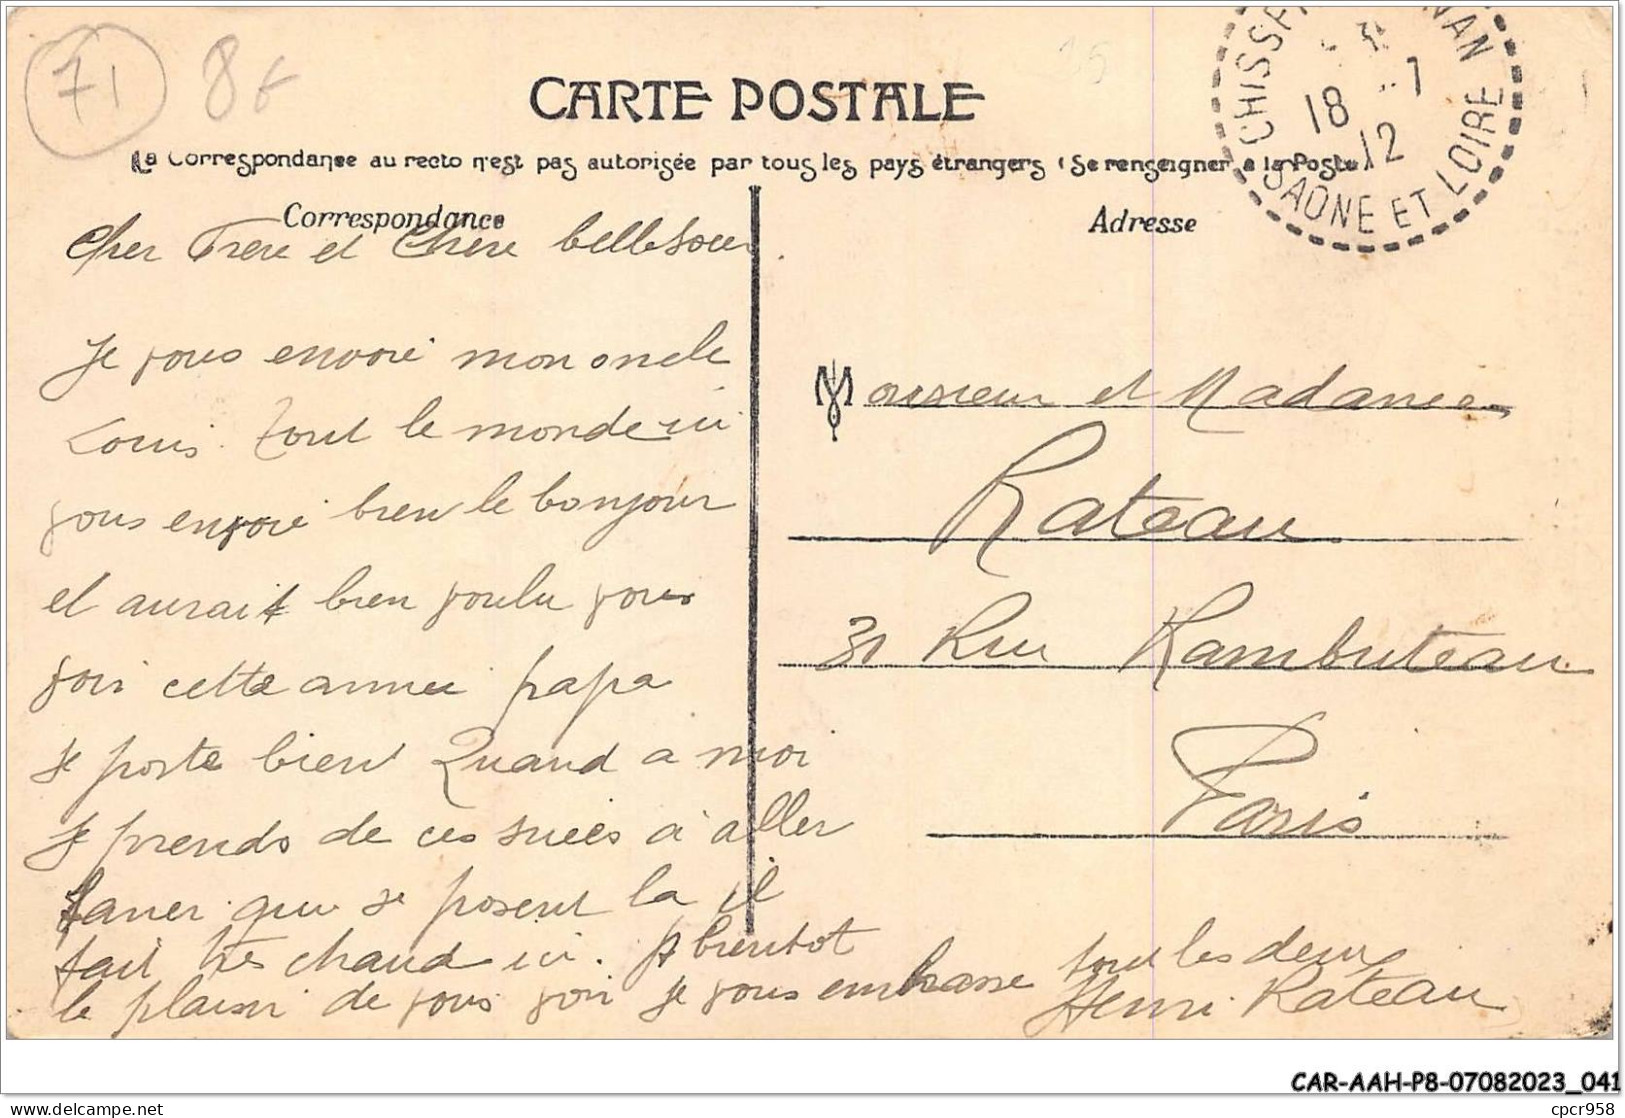 71
8f
CARTE POSTALE
La Correspondance au recto n'est pas autorisée par tous les pays étrangers (Se renseigner à la Poste)
Correspondance
Adresse
18 -7
12
SAONE ET LOIRE
Cher Frere et Chere belle soeur
Je vous envoie mon oncle
Louis. Tout le monde ici
vous envoie bien le bonjour
et aurait bien voulu vous
voir cette annee papa
se porte bient Quand a moi
je prends de ces suées a aller
faner que se posent la il
fait très chaud ici. A bientot
le plaisir de vous voir je vous embrasse tout les deux
Henri Rateau
Monsieur et Madame
Rateau
31 Rue Rambuteau
Paris
CAR-AAH-P8-07082023_041
delcampe.net
cpcr958